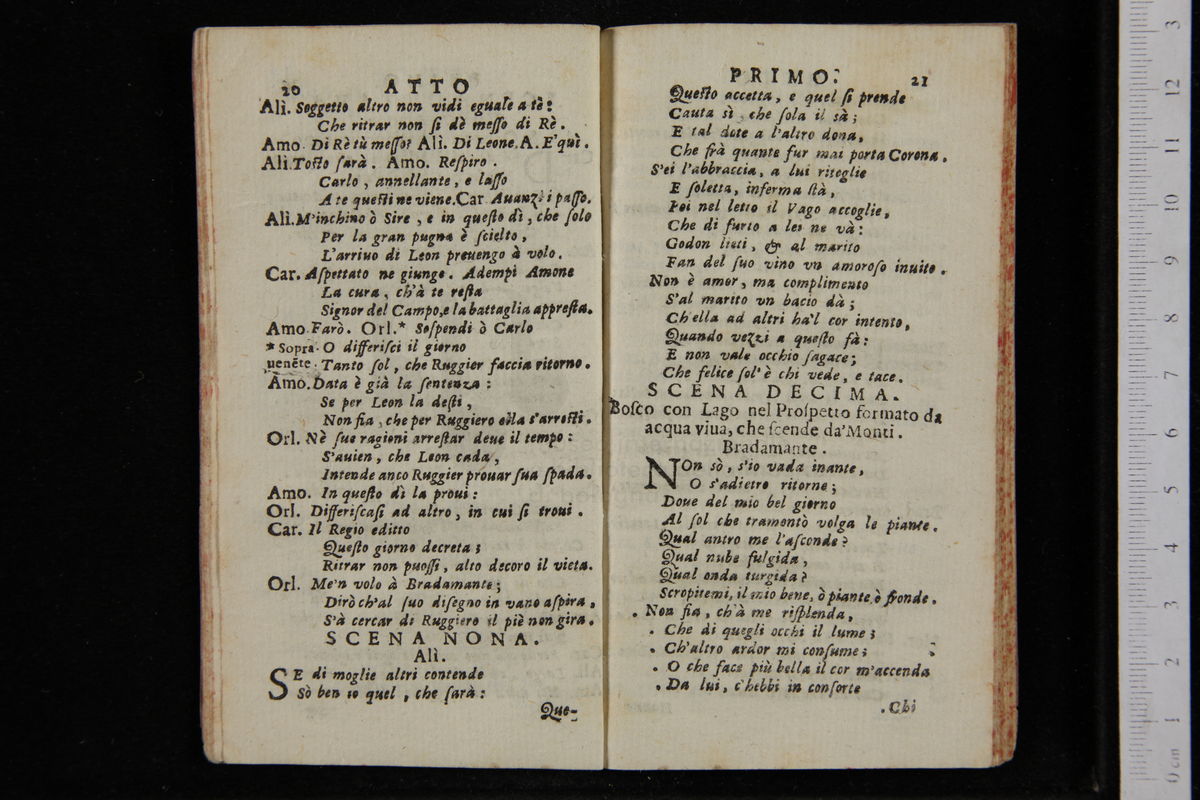 20 ATTO
Alì. Soggetto altro non vidi eguale a tè:
Che ritrar non ſi dè meſſo di Rè.
Amo. Di Rè tù meſſo? Ali. Di Leone. A. E'quì.
Ali. Toſto ſarà. Amo. Reſpiro.
Carlo, annellante, e laſſo
A te queſti ne viene. Car. Auanzi i paſſo.
Alì. M'inchino ò Sire, e in queſto dì, che ſolo
Per la gran pugna è ſcielto,
L'arriuo di Leon preuengo à volo.
Car. Aſpettato ne giunge. Adempi Amone
La cura, ch'à te reſta
Signor del Campo, e la battaglia appreſta.
Amo. Farò. Orl.* Soſpendi ò Carlo
* Sopra- O differiſci il giorno
uenēte. Tanto ſol, che Ruggier faccia ritorno.
Amo. Data è già la ſentenza:
Se per Leon la deſti,
Non fia, che per Ruggiero ella s'arreſti.
Orl. Nè ſue ragioni arreſtar deue il tempo:
S'auien, che Leon cada,
Intende anco Ruggier prouar ſua ſpada.
Amo. In queſto dì la proui:
Orl. Differiſcaſi ad altro, in cui ſi troui.
Car. Il Regio editto
Queſto giorno decreta;
Ritrar non puoſſi, alto decoro il vieta.
Orl. Me'n volo à Bradamante;
Dirò ch'al ſuo diſegno in vano aſpira,
S'à cercar di Ruggiero il piè non gira.
SCENA NONA.
Alì.
SE di moglie altri contende
Sò ben io quel, che ſarà:
Que-
PRIMO. 21
Queſto accetta, e quel ſi prende
Cauta sì, che ſola il sà;
E tal dote a l'altro dona,
Che frà quante fur mai porta Corona.
S'ei l'abbraccia, a lui ritoglie
E ſoletta, inferma ſtà,
Poi nel letto il Vago accoglie,
Che di furto a lei ne và:
Godon lieti, & al marito
Fan del ſuo vino vn amoroſo inuito.
Non è amor, ma complimento
S'al marito vn bacio dà;
Ch'ella ad altri ha'l cor intento,
Quando vezzi a queſto fà:
E non vale occhio ſagace;
Che felice ſol'è chi vede, e tace.
SCENA DECIMA.
Boſco con Lago nel Proſpetto formato da
acqua viua, che ſcende da'Monti.
Bradamante.
NOn sò, s'io vada inante,
O s'adietro ritorne;
Doue del mio bel giorno
Al ſol che tramontò volga le piante.
Qual antro me l'aſconde?
Qual nube fulgida,
Qual onda turgida?
Scropitemi, il mio bene, ò piante, ò fronde.
Non fia, ch'à me riſplenda,
Che di quegli occhi il lume;
Ch'altro ardor mi conſume;
O che face più bella il cor m'accenda
Da lui, c'hebbi in conſorte
Chi
0 cm 1 2 3 4 5 6 7 8 9 10 11 12 3